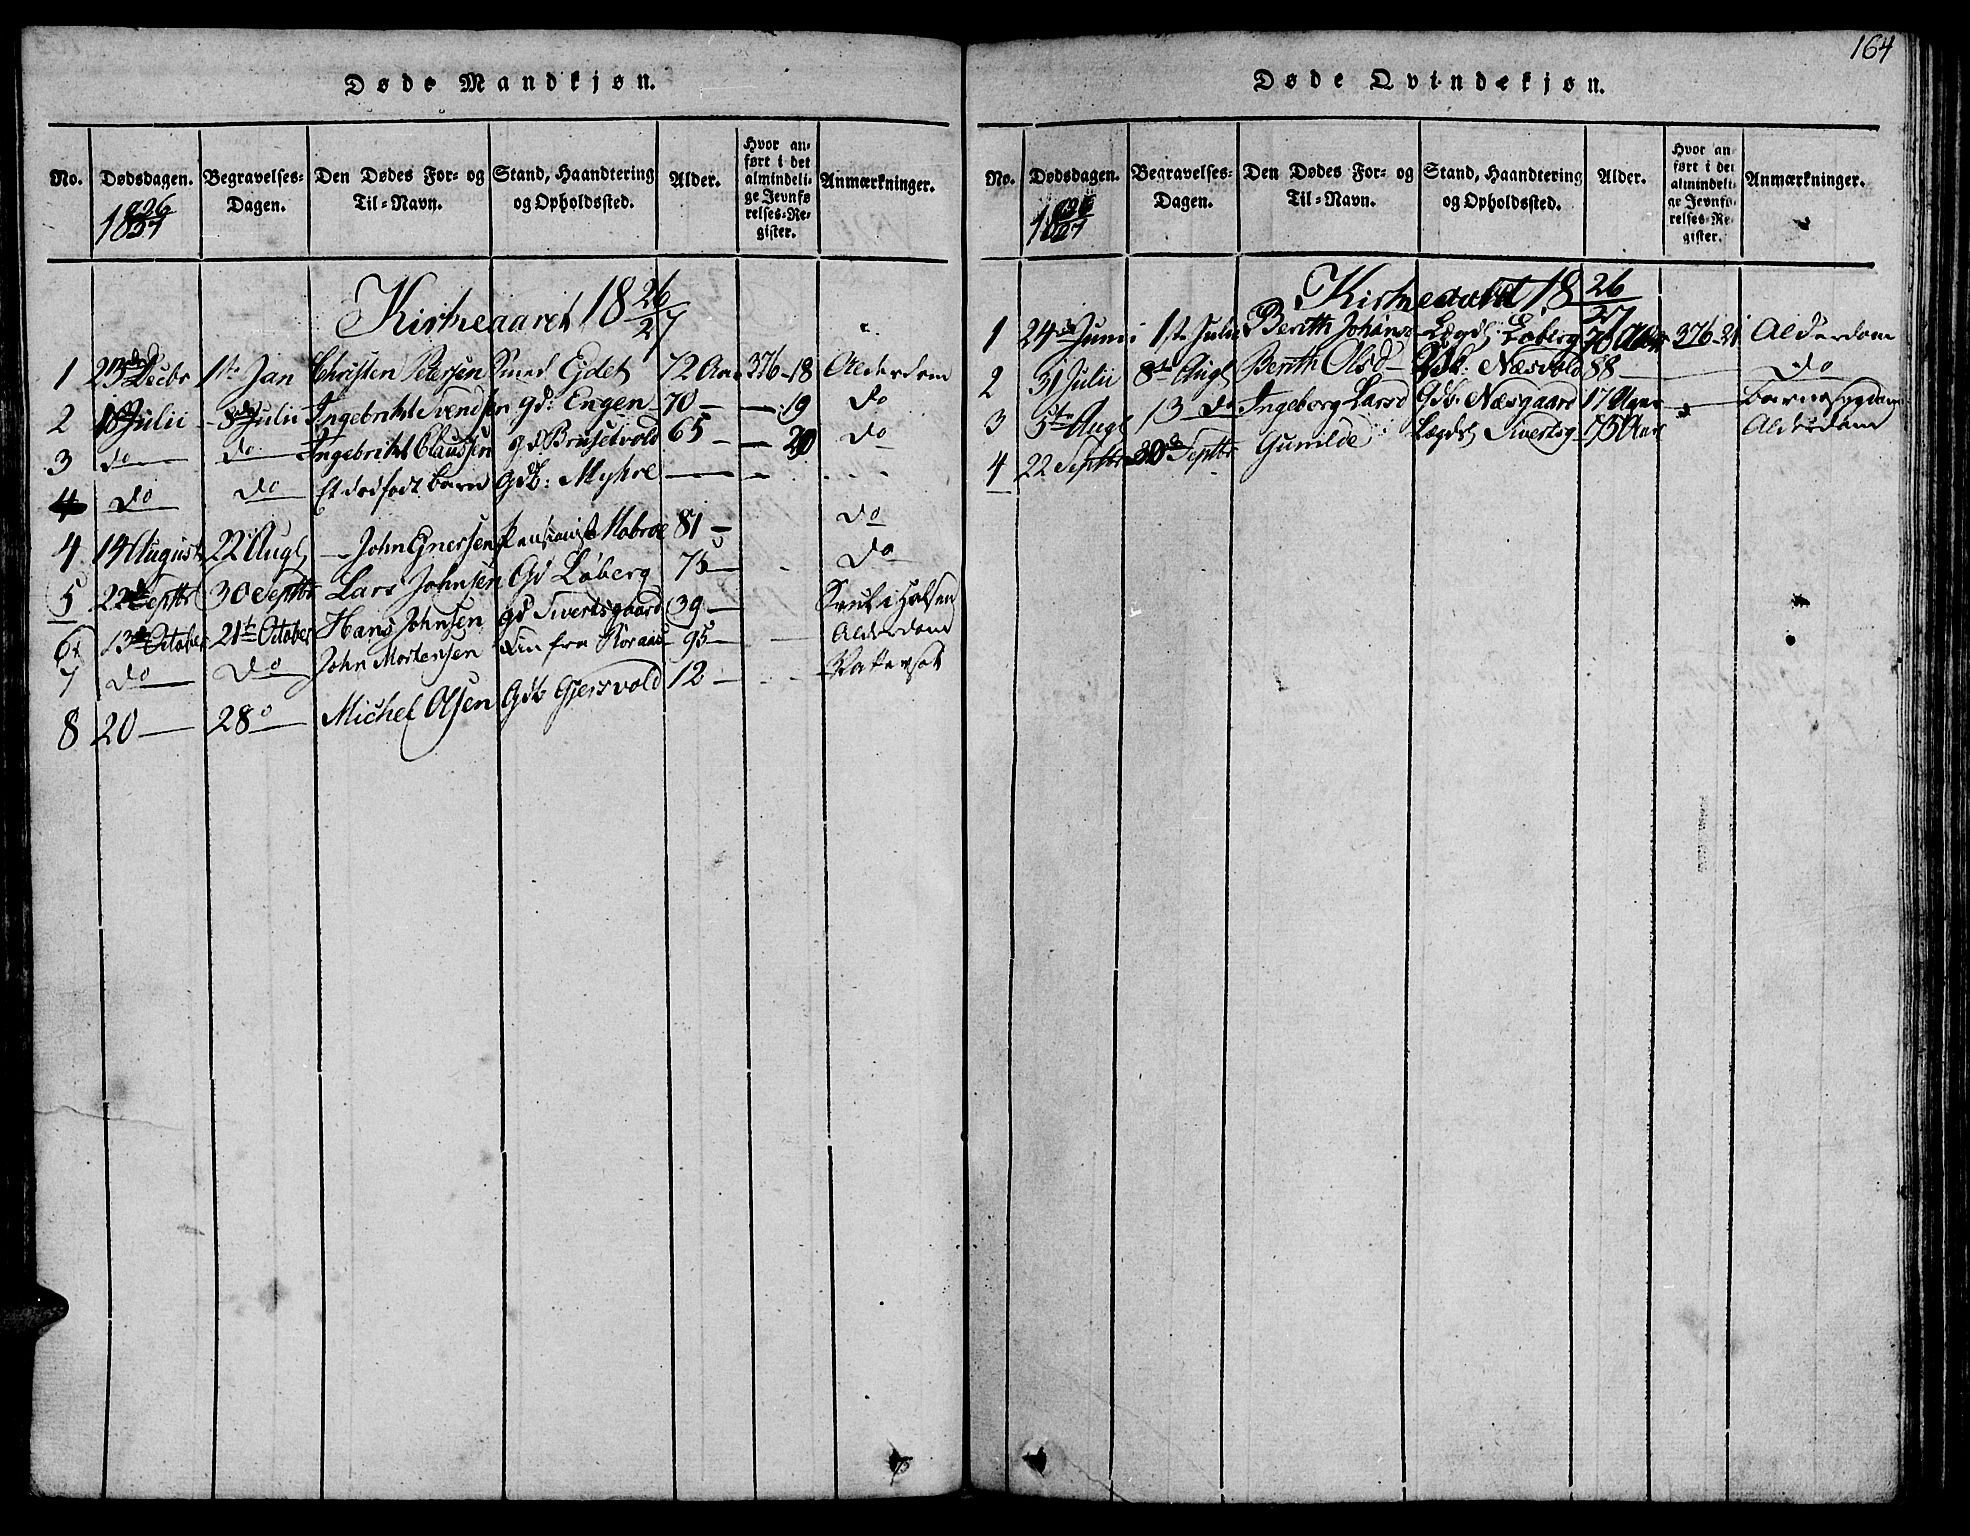 164
Døde Mandkjøn.
No. Dødsdagen. Begravelses-Dagen. Den Dødes For- og Til-Navn. Stand, Haandtering og Opholdssted. Alder. Hvor anført i det almindelige Jevnførelses-Register. Anmærkninger.
1826/27
Kirkeaaret 1826/27
1 23de Decbr 1ste Jan Christen Petersen Smed Eidet 72 Aar 376 - 18 Alderdom
2 Julii Julii Ingebrikt Svendsen gd: Engen 70 — — 19 do
3 do do Ingebrikt Claussen gd Bruselvold 65 — — 20 do
4 do do Et dødfødt barn Gdb: Myhre — —
4 14 August 22 Augt John Ejnersen Pensionist 81 — do
5 22de Septbr 30 Septbr Lars Johnsen Gd Løberg 75 — do
6 13de October 21te October Hans Johnsen gd Sivertsgaard 39 —
7 do do John Mortensen fra 95 — Alderdom
8 20 — 28 — Michel Olsen Gdb Gjersvold 12 —
Døde Qvindekjøn.
No. Dødsdagen. Begravelses-Dagen. Den Dødes For- og Til-Navn. Stand, Haandtering og Opholdssted. Alder. Hvor anført i det almindelige Jevnførelses-Register. Anmærkninger.
1826/27
Kirkeaaret 1826/27
1 24de Junii 1ste Julii Berith Johansd Lægdsl Løberg 76 Aar 376 - 21 Alderdom
2 31 Julii 8de Augt Berith Olsd Gdk: Næsvold 88 — — do
3 5te Augt 13 do Ingeborg Larsd Gdb. Næsgaard 17 Aar —
4 22 Septbr 30 Septbr Gunilde Lægdsl Sivertsg 75 Aar Alderdom